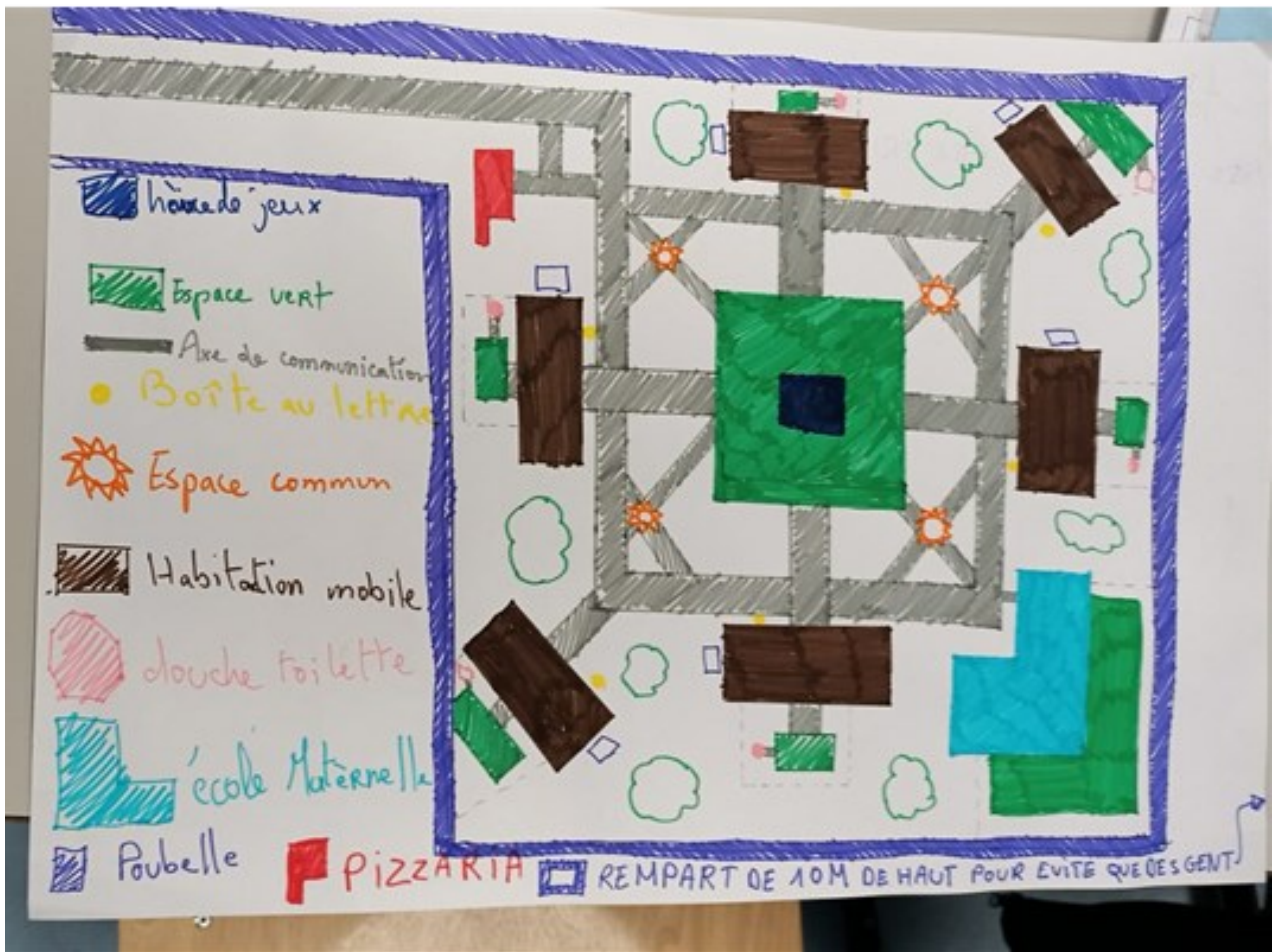 de jeux
Espace vert
Axe de communication
Boîte au lettre
Espace commun
Habitation mobile
douche toilette
école Matèrnelle
Poubelle
PIZZARIA
REMPART DE 10M DE HAUT POUR EVITE QUE DES GENT